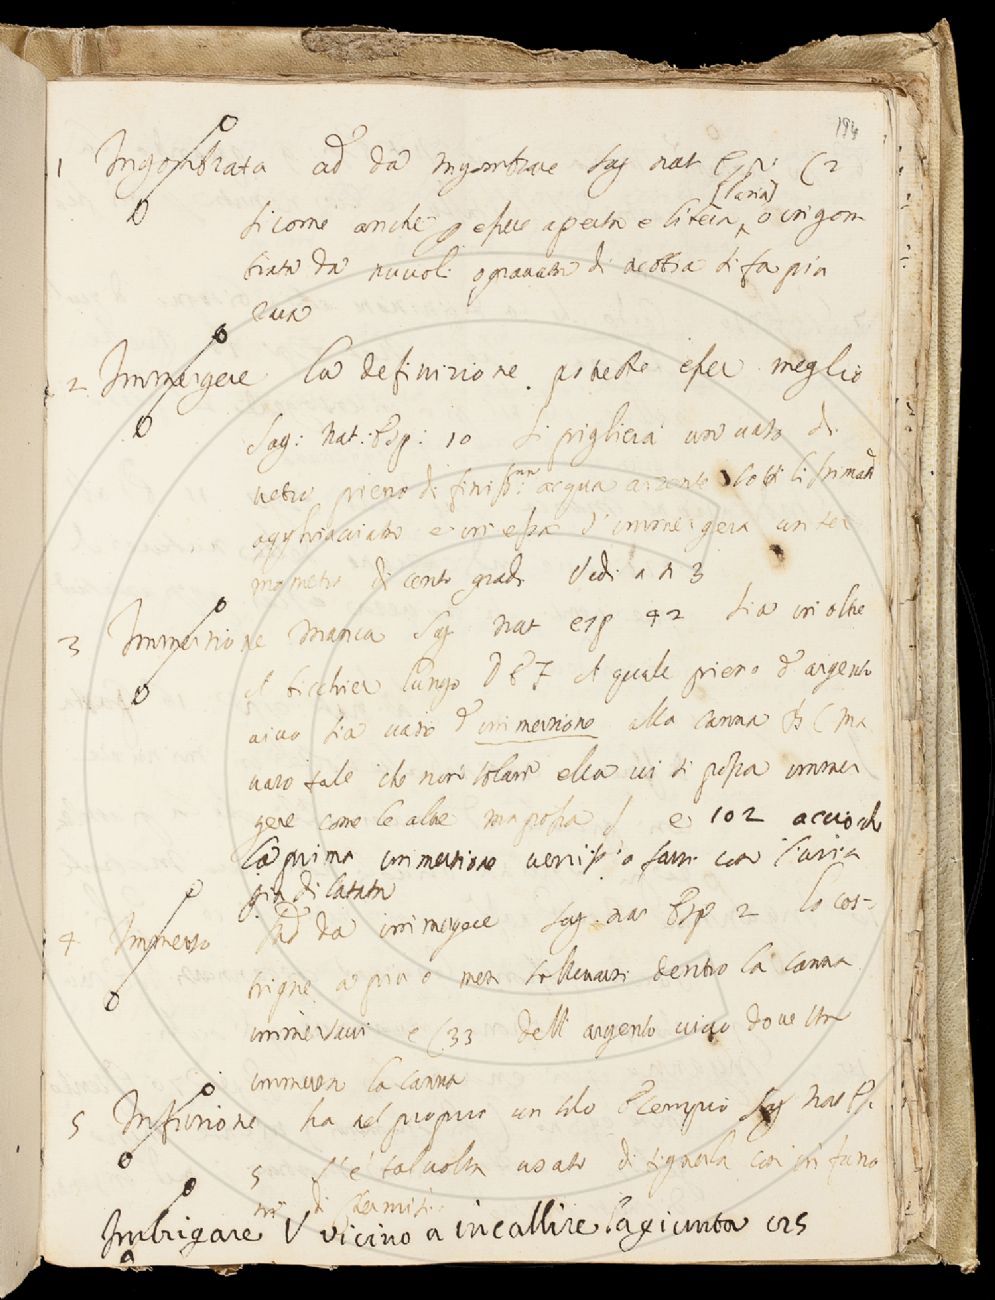 194
1 Ingombrata ad da ingombrare Sag nat Esp: C 2
sicome anche p esser aperta e libera (l'aria) o ingom
brata da nuvoli o gravata di nebbia si fa più
rara
2 Immergere la definizione potrebbe esser meglio
Sag: nat. Esp: 10 si piglierà un vaso di
vetro pieno di finiss: acqua arzente
agghiacciato e in essa s'immergerà un ter
mometro di cento gradi Vedi a n 3
3 Immersione manca Sag nat esp 42 sia in oltre
il bicchier lungo D E F il quale pieno d'argento
vivo sia vaso d'immersione alla canna B C ma
vaso tale che non solam ella vi si possa immer
gere come le altre ma possa e 102 acciò ch
la prima immersione venisse a farsi con l'aria
più dilatata
4 Immerso Ad da immergere Sag. nat Esp 2 lo cos-
trigne a più o men sollevarsi dentro la canna
immersavi e C 33 dell argento vivo dove era
immersa la canna
5 Infusione ha nel proprio un solo Esempio Sag nat Esp.
5 s'è talvolta usato di tignerla con infusio
ni di Kermisi.
Imbrigare V vicino a incallire l'agiunta 125